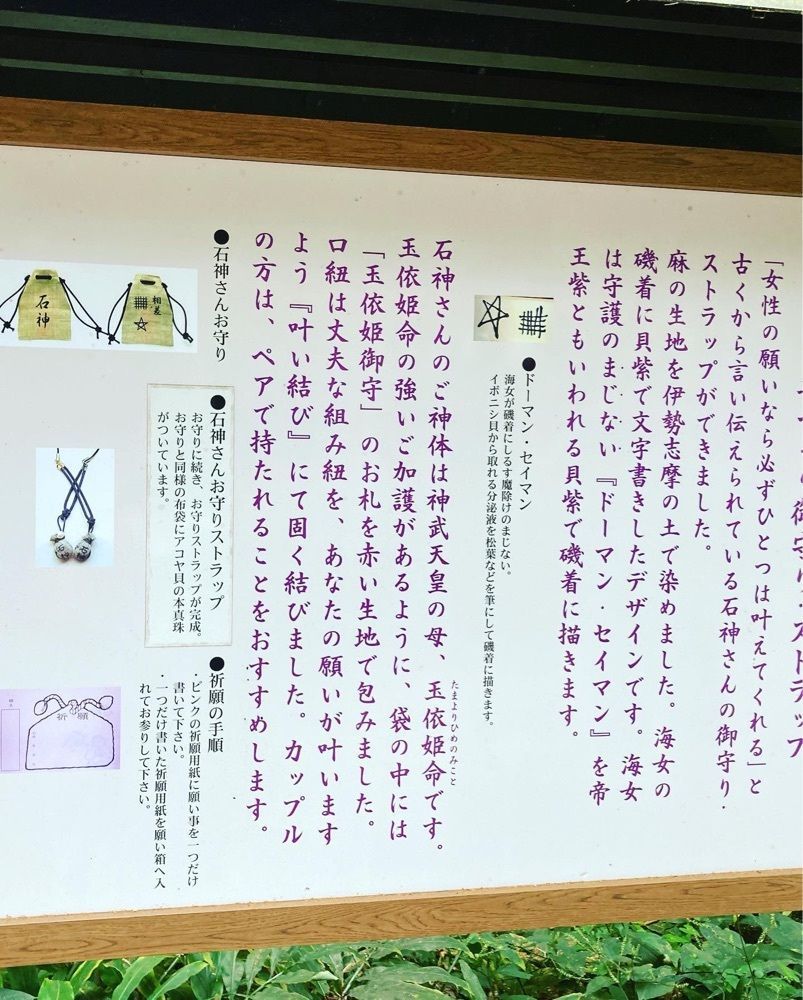 御守り・ストラップ
「女性の願いなら必ずひとつは叶えてくれる」と
古くから言い伝えられている石神さんの御守り・
ストラップができました。
麻の生地を伊勢志摩の土で染めました。海女の
磯着に貝紫で文字書きしたデザインです。海女
は守護のまじない『ドーマン・セイマン』を帝
王紫ともいわれる貝紫で磯着に描きます。
●ドーマン・セイマン
海女が磯着にしるす魔除けのまじない。
イボニシ貝から取れる分泌液を松葉などを筆にして磯着に描きます。
石神さんのご神体は神武天皇の母、玉依姫命です。
たまよりひめのみこと
玉依姫命の強いご加護があるように、袋の中には
「玉依姫御守」のお札を赤い生地で包みました。
口紐は丈夫な組み紐を、あなたの願いが叶います
よう『叶い結び』にて固く結びました。カップル
の方は、ペアで持たれることをおすすめします。
●石神さんお守り
相差
石神
●石神さんお守りストラップ
お守りに続き、お守りストラップが完成。
お守りと同様の布袋にアコヤ貝の本真珠
がついています。
●祈願の手順
・ピンクの祈願用紙に願い事を一つだけ
書いて下さい。
・一つだけ書いた祈願用紙を願い箱へ入
れてお参りして下さい。
祈願